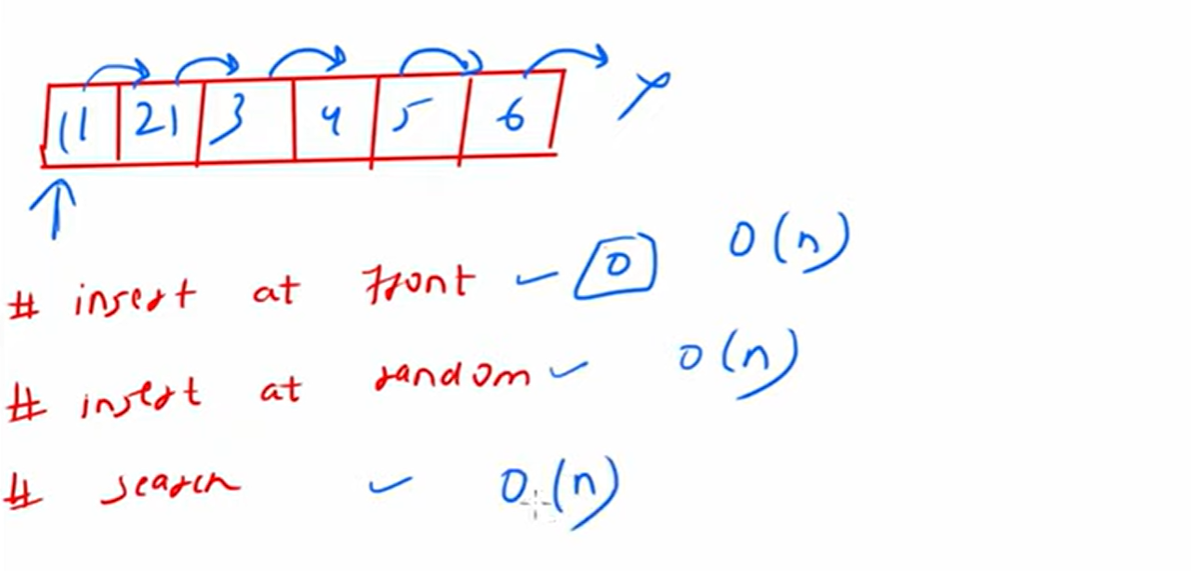 11 21 3 4 5 6
# insert at front 0 O(n)
# insert at random O(n)
# search O(n)